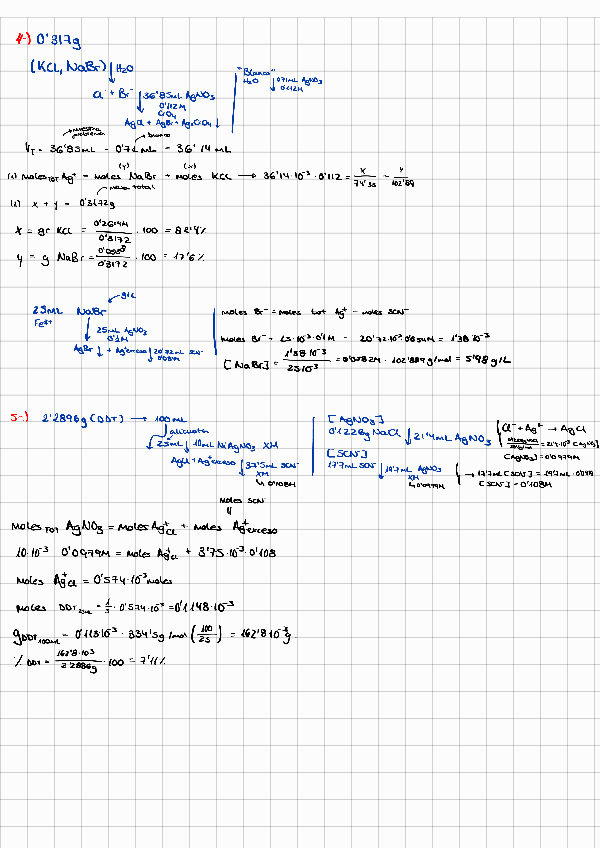 4-) 0'317g
(KCl, NaBr) | H₂O
Cl⁻ + Br⁻ | 36'85mL AgNO₃
0'112M
CrO₄
AgCl + AgBr + Ag₂CrO₄ ↓
"Blanco"
H₂O | 0'71mL AgNO₃
0'112M
muestra problema
blanco
V_T = 36'85mL - 0'71 mL = 36'14 mL
(y) (x)
(1) moles TOT Ag⁺ = moles NaBr + moles KCl → 36'14·10⁻³ · 0'112 = x/74'55 + y/102'89
masa total
(2) x + y = 0'3172g
x = gr KCl = 0'2614/0'3172 · 100 = 82'4%
y = g NaBr = 0'0558/0'3172 · 100 = 17'6%
g/L
25mL NaBr
Fe³⁺
25mL AgNO₃
0'1M
AgBr ↓ + Ag⁺exceso | 20'72mL SCN⁻
0'054M
moles Br⁻ = moles tot Ag⁺ - moles SCN⁻
moles Br⁻ = 25·10⁻³·0'1M - 20'72·10⁻³·0'054M = 1'38·10⁻³
[NaBr] = 1'38·10⁻³/25·10⁻³ = 0'0582M · 102'889g/mol = 5'98 g/L
5-) 2'2896g (DDT) → 100mL
alícuota
25mL | 10mL NiAgNO₃ XM
AgCl + Ag⁺exceso | 3'75mL SCN⁻
XM
↳ 0'108M
[AgNO₃]
0'1226g NaCl | 21'4mL AgNO₃
[SCN⁻]
17'7mL SCN⁻ | 19'7mL AgNO₃
XM
↳ 0'0979M
Cl⁻ + Ag⁺ → AgCl
= 21'4·10⁻³ [AgNO₃]
[AgNO₃] = 0'0979M
→ 17'7mL [SCN⁻] = 19'7mL · 0'0979
[SCN⁻] = 0'108M
moles SCN⁻
moles TOT AgNO₃ = moles Ag⁺Cl + moles Ag⁺exceso
10·10⁻³ · 0'0979M = moles Ag⁺Cl + 3'75·10⁻³·0'108
moles Ag⁺Cl = 0'574·10⁻³ moles
moles DDT 25mL = 1/5 · 0'574·10⁻³ = 0'1148·10⁻³
g DDT 100mL = 0'115·10⁻³ · 354'5g/mol (100/25) = 162'8·10⁻³g
% DDT = 162'8·10⁻³/2'2896g · 100 = 7'11%